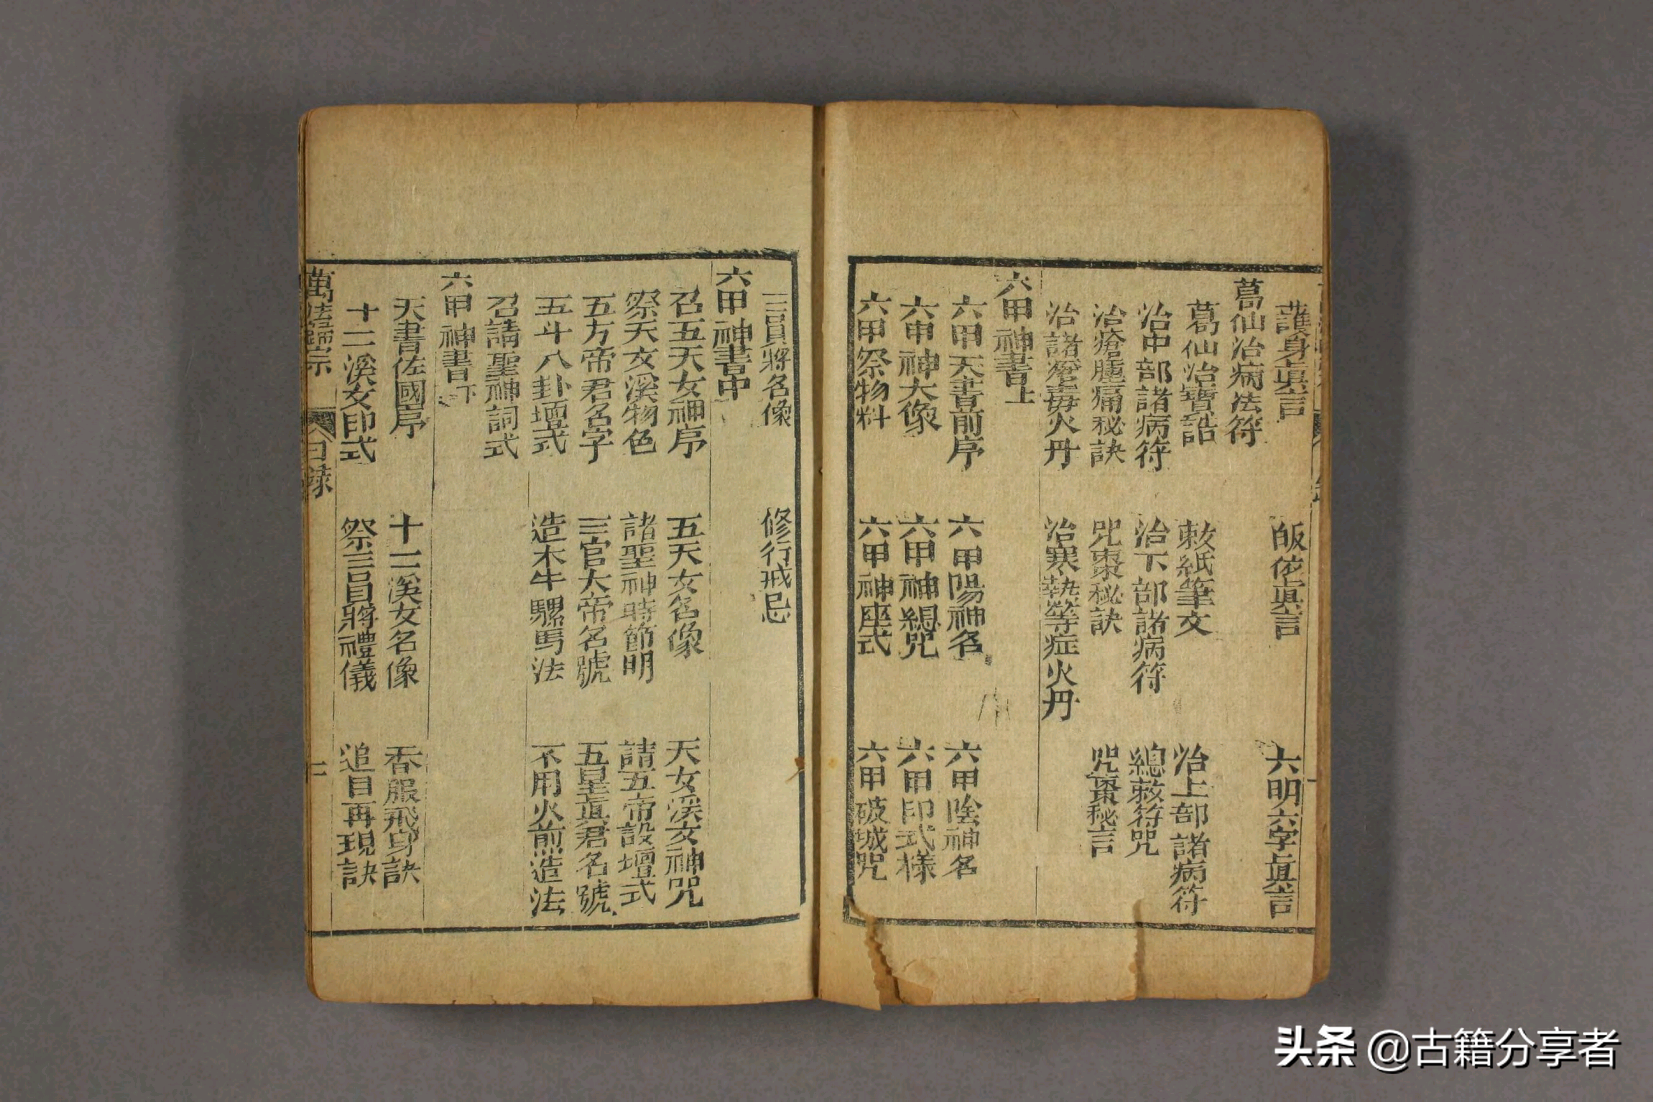 護身真言　皈依真言　六明六字真言
葛仙治病法符
葛仙治寶誥　敕紙筆文　治上部諸病符
治中部諸病符　治下部諸病符　總敕符咒
治瘡腫痛秘訣　咒棗秘訣　咒棗秘言
治諸瘡毒火丹　治寒熱等症火丹
六甲神書上
六甲天書前序　六甲陽神名　六甲陰神名
六甲神大像　六甲神總咒　六甲印式樣
六甲祭物料　六甲神座式　六甲破城咒
三員將名像　修行戒忌
六甲神書中
召五天女神序　五天女名像　天女溪女神咒
祭天女溪物色　諸聖神時節明　請五帝設壇式
五方帝君名字　三官大帝名號　五星真君名號
五斗八卦壇式　造木牛騾馬法　不用火煎造法
召請聖神詞式
六甲神書下
天書佐國序　十二溪女名像　香服飛身訣
十二溪女印式　祭三員將禮儀　追目再現訣
萬法歸宗　目錄
头条 @古籍分享者